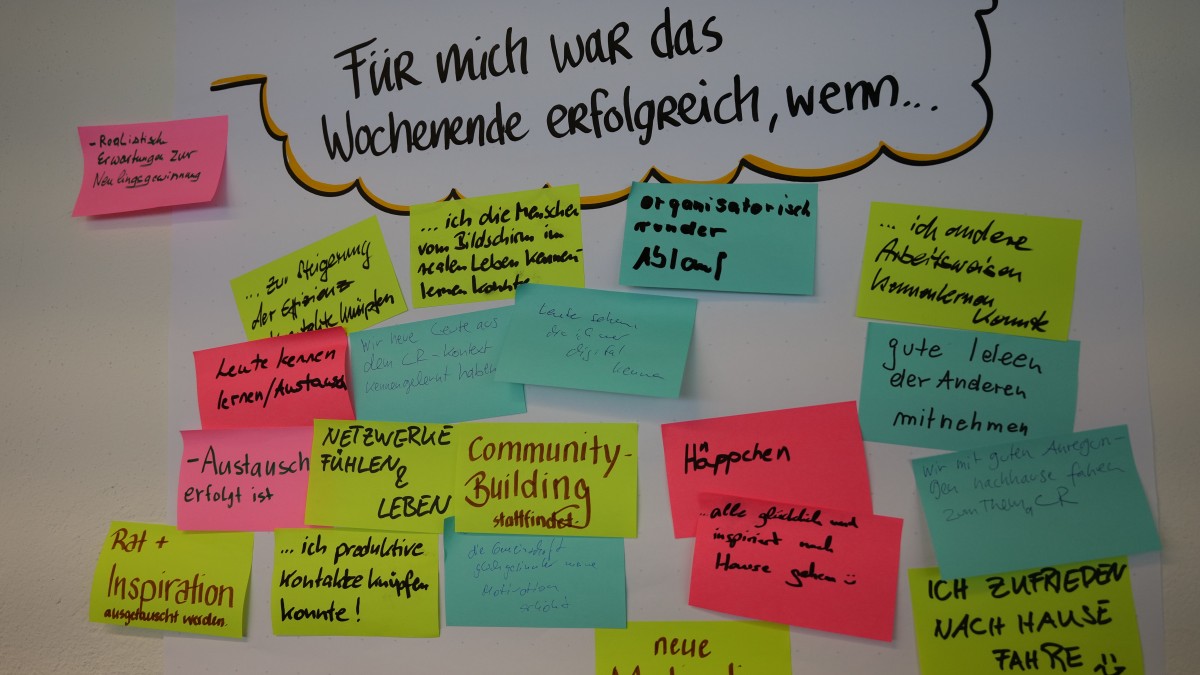 Für mich war das
Wochenende erfolgreich, wenn...
- Realistisch
Erwartungen zur
Neulingsgewinnung
... zur Steigerung
der Effizienz
Kontakte knüpfen
... ich die Menschen
vom Bildschirm im
realen Leben kennen-
lernen konnte
organisatorisch
runder
Ablauf
... ich andere
Arbeitsweisen
kennenlernen
konnte
Leute kennen
lernen/Austausch
wir neue Leute aus
dem CR-Kontext
kennengelernt haben
Leute sehen,
die immer
digital
kenne
gute Ideen
der Anderen
mitnehmen
- Austausch
erfolgt ist
NETZWERKE
FÜHLEN &
LEBEN
Community-
Building
stattfindet.
Häppchen
... alle glücklich und
inspiriert nach
Hause gehen
wir mit guten Anregun-
gen nachhause fahren
zum Thema CR
Rat +
Inspiration
ausgetauscht werden.
... ich produktive
Kontakte knüpfen
konnte!
die Gemeinschaft
Motivation
ICH ZUFRIEDEN
NACH HAUSE
FAHRE
neue